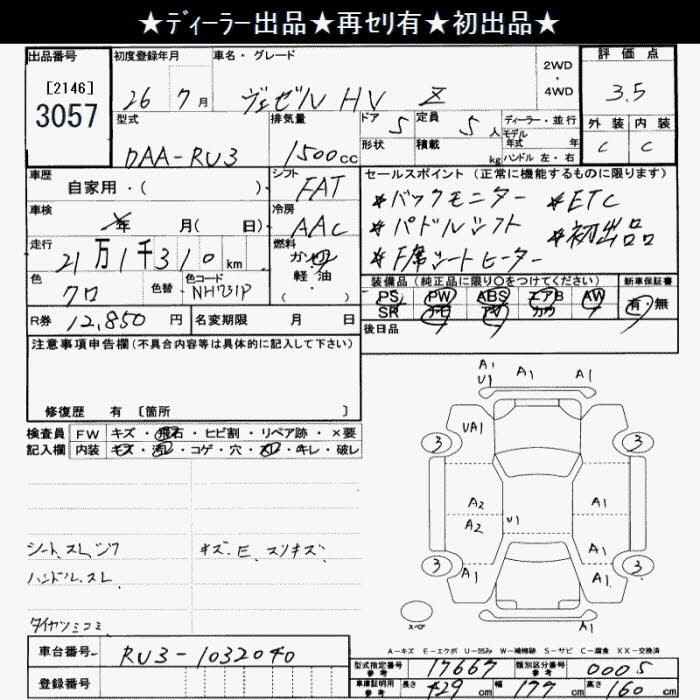 ★ディーラー出品★再セリ有★初出品★
出品番号
[2146]
3057
初度登録年月
26 7月
車名・グレード
ヴェゼル HV Z
2WD
・
4WD
評価点
3.5
外装 内装
C C
型式
DAA-RU3
排気量
1500cc
ドア 5
形状
定員 5人
積載 kg
ディーラー・並行
モデル
年式 年
ハンドル 左・右
車歴
自家用・( )
シフト
FAT
車検
年 月( 日)
冷房
AAC
走行
21万1千310km
燃料
ガソリン
軽・油
( )
色
クロ
色替
色コード
NH731P
R券 12,850円
名変期限 月 日
セールスポイント(正常に機能するものに限ります)
*バックモニター *ETC
*パドルシフト *初出品
*F席シートヒーター
装備品(純正品に限り○をつけてください)
PS PW ABS エアB AW
SR ナビ TV カワ
新車保証書
有・無
後日品
注意事項申告欄(不具合内容等は具体的に記入して下さい)
修復歴 有 [箇所 ]
検査員 FW キズ・飛石・ヒビ割・リペア跡・×要
記入欄 内装 キズ・汚レ・コゲ・穴・スレ・キレ・破レ
シート、スレ、シワ
キズ・E、スリキズ
ハンドル、スレ
タイヤツミコミ
A1
U1 A1 A1
UA1
3 3
A2 A1
A2 U1
A1
3 3
A1 A1
A1
スペア
A-キズ E-エクボ U-凹み W-補修跡 S-サビ C-腐食 XX-交換済
車台番号 RU3-1032040
登録番号
型式指定番号
参考
17667
類別区分番号
参考
0005
車庫証明用
参考
長さ 429cm 幅 177cm 高さ 160cm